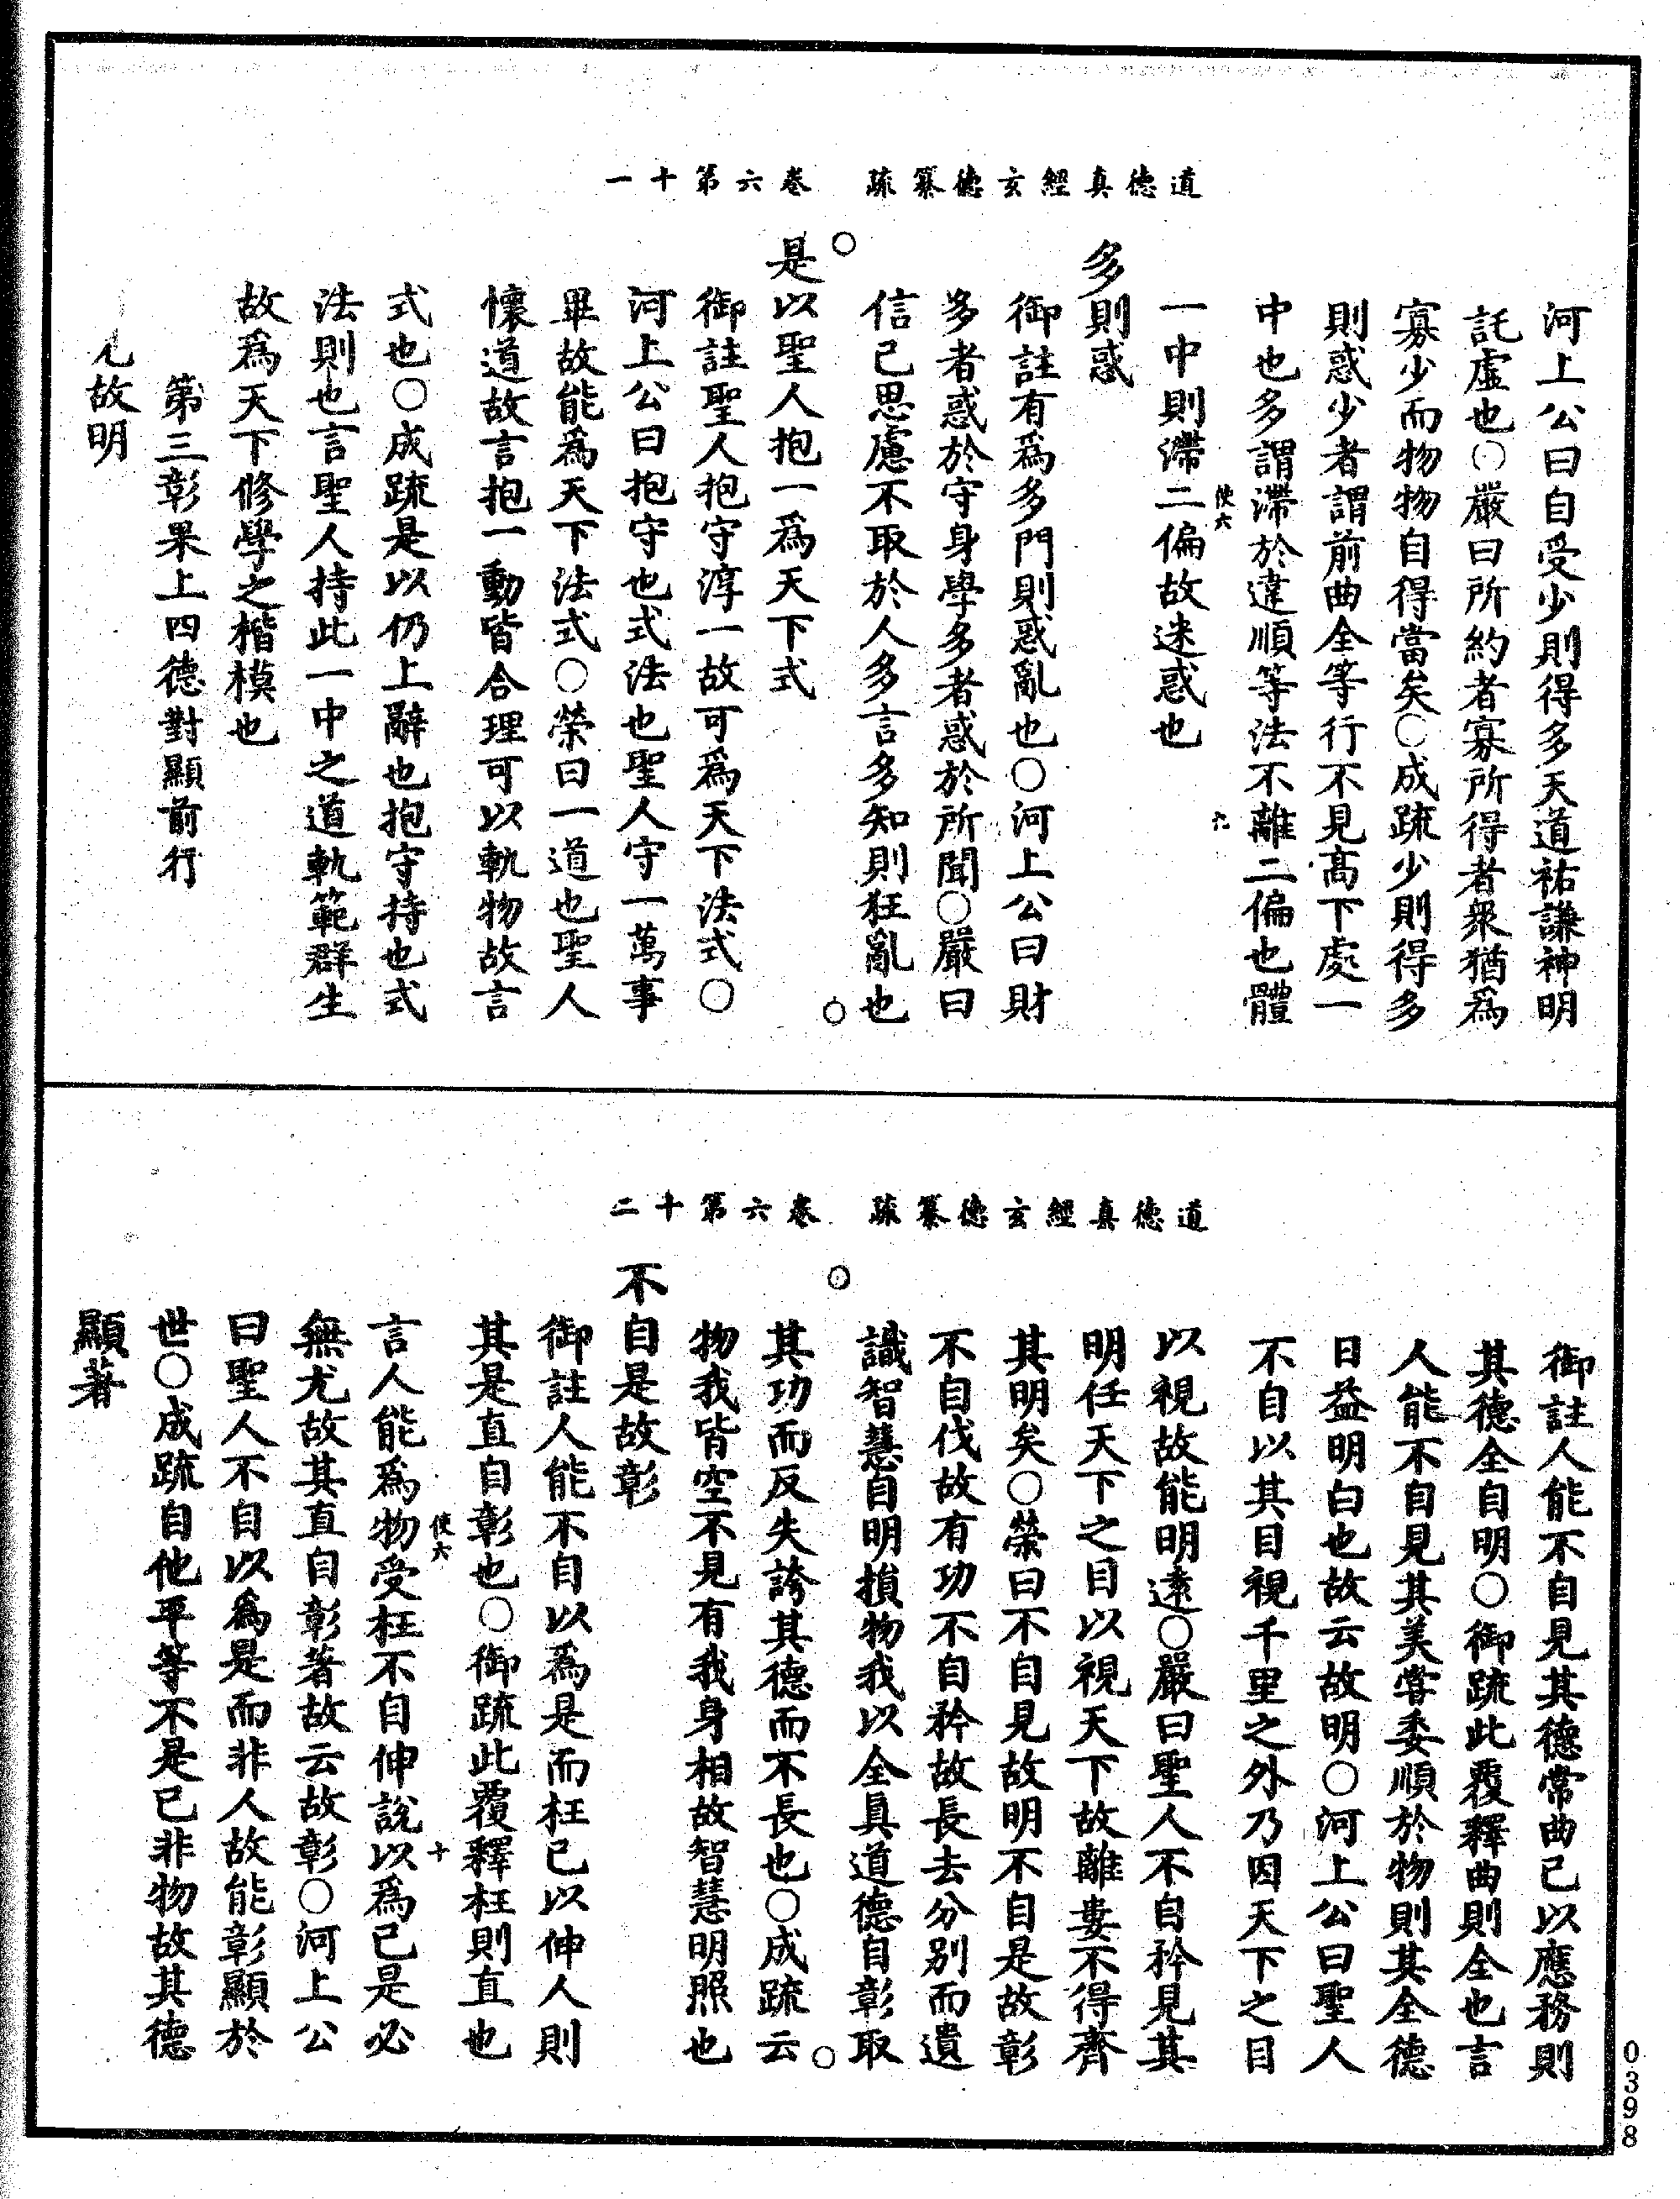 道德真經玄德纂疏　卷六第十一
河上公曰自受少則得多天道祐謙神明
託虛也○嚴曰所約者寡所得者衆猶爲
寡少而物物自得當矣○成疏少則得多
則惑少者謂前曲全等行不見高下處一
中也多謂滯於違順等法不離二偏也體
使六　九
一中則滯二偏故迷惑也
多則惑
御註有爲多門則惑亂也○河上公曰財
多者惑於守身學多者惑於所聞○嚴曰
信己思慮不取於人多言多知則狂亂也
○　○
是以聖人抱一爲天下式
御註聖人抱守淳一故可爲天下法式○
河上公曰抱守也式法也聖人守一萬事
畢故能爲天下法式○榮曰一道也聖人
懷道故言抱一動皆合理可以軌物故言
式也○成疏是以仍上辭也抱守持也式
法則也言聖人持此一中之道軌範群生
故爲天下修學之楷模也
第三彰果上四德對顯前行
故明
道德真經玄德纂疏　卷六第十二
御註人能不自見其德常曲己以應務則
其德全自明○御疏此覆釋曲則全也言
人能不自見其美常委順於物則其全德
日益明白也故云故明○河上公曰聖人
不自以其目視千里之外乃因天下之目
以視故能明遠○嚴曰聖人不自矜見其
明任天下之目以視天下故離婁不得齊
其明矣○榮曰不自見故明不自是故彰
不自伐故有功不自矜故長去分别而遺
識智慧自明損物我以全真道德自彰取
○　○
其功而反失誇其德而不長也○成疏云
物我皆空不見有我身相故智慧明照也
不自是故彰
御註人能不自以爲是而枉己以伸人則
其是直自彰也○御疏此覆釋枉則直也
使六　十
言人能爲物受枉不自伸說以爲己是必
無尤故其直自彰著故云故彰○河上公
曰聖人不自以爲是而非人故能彰顯於
世○成疏自他平等不是己非物故其德
顯著
0398